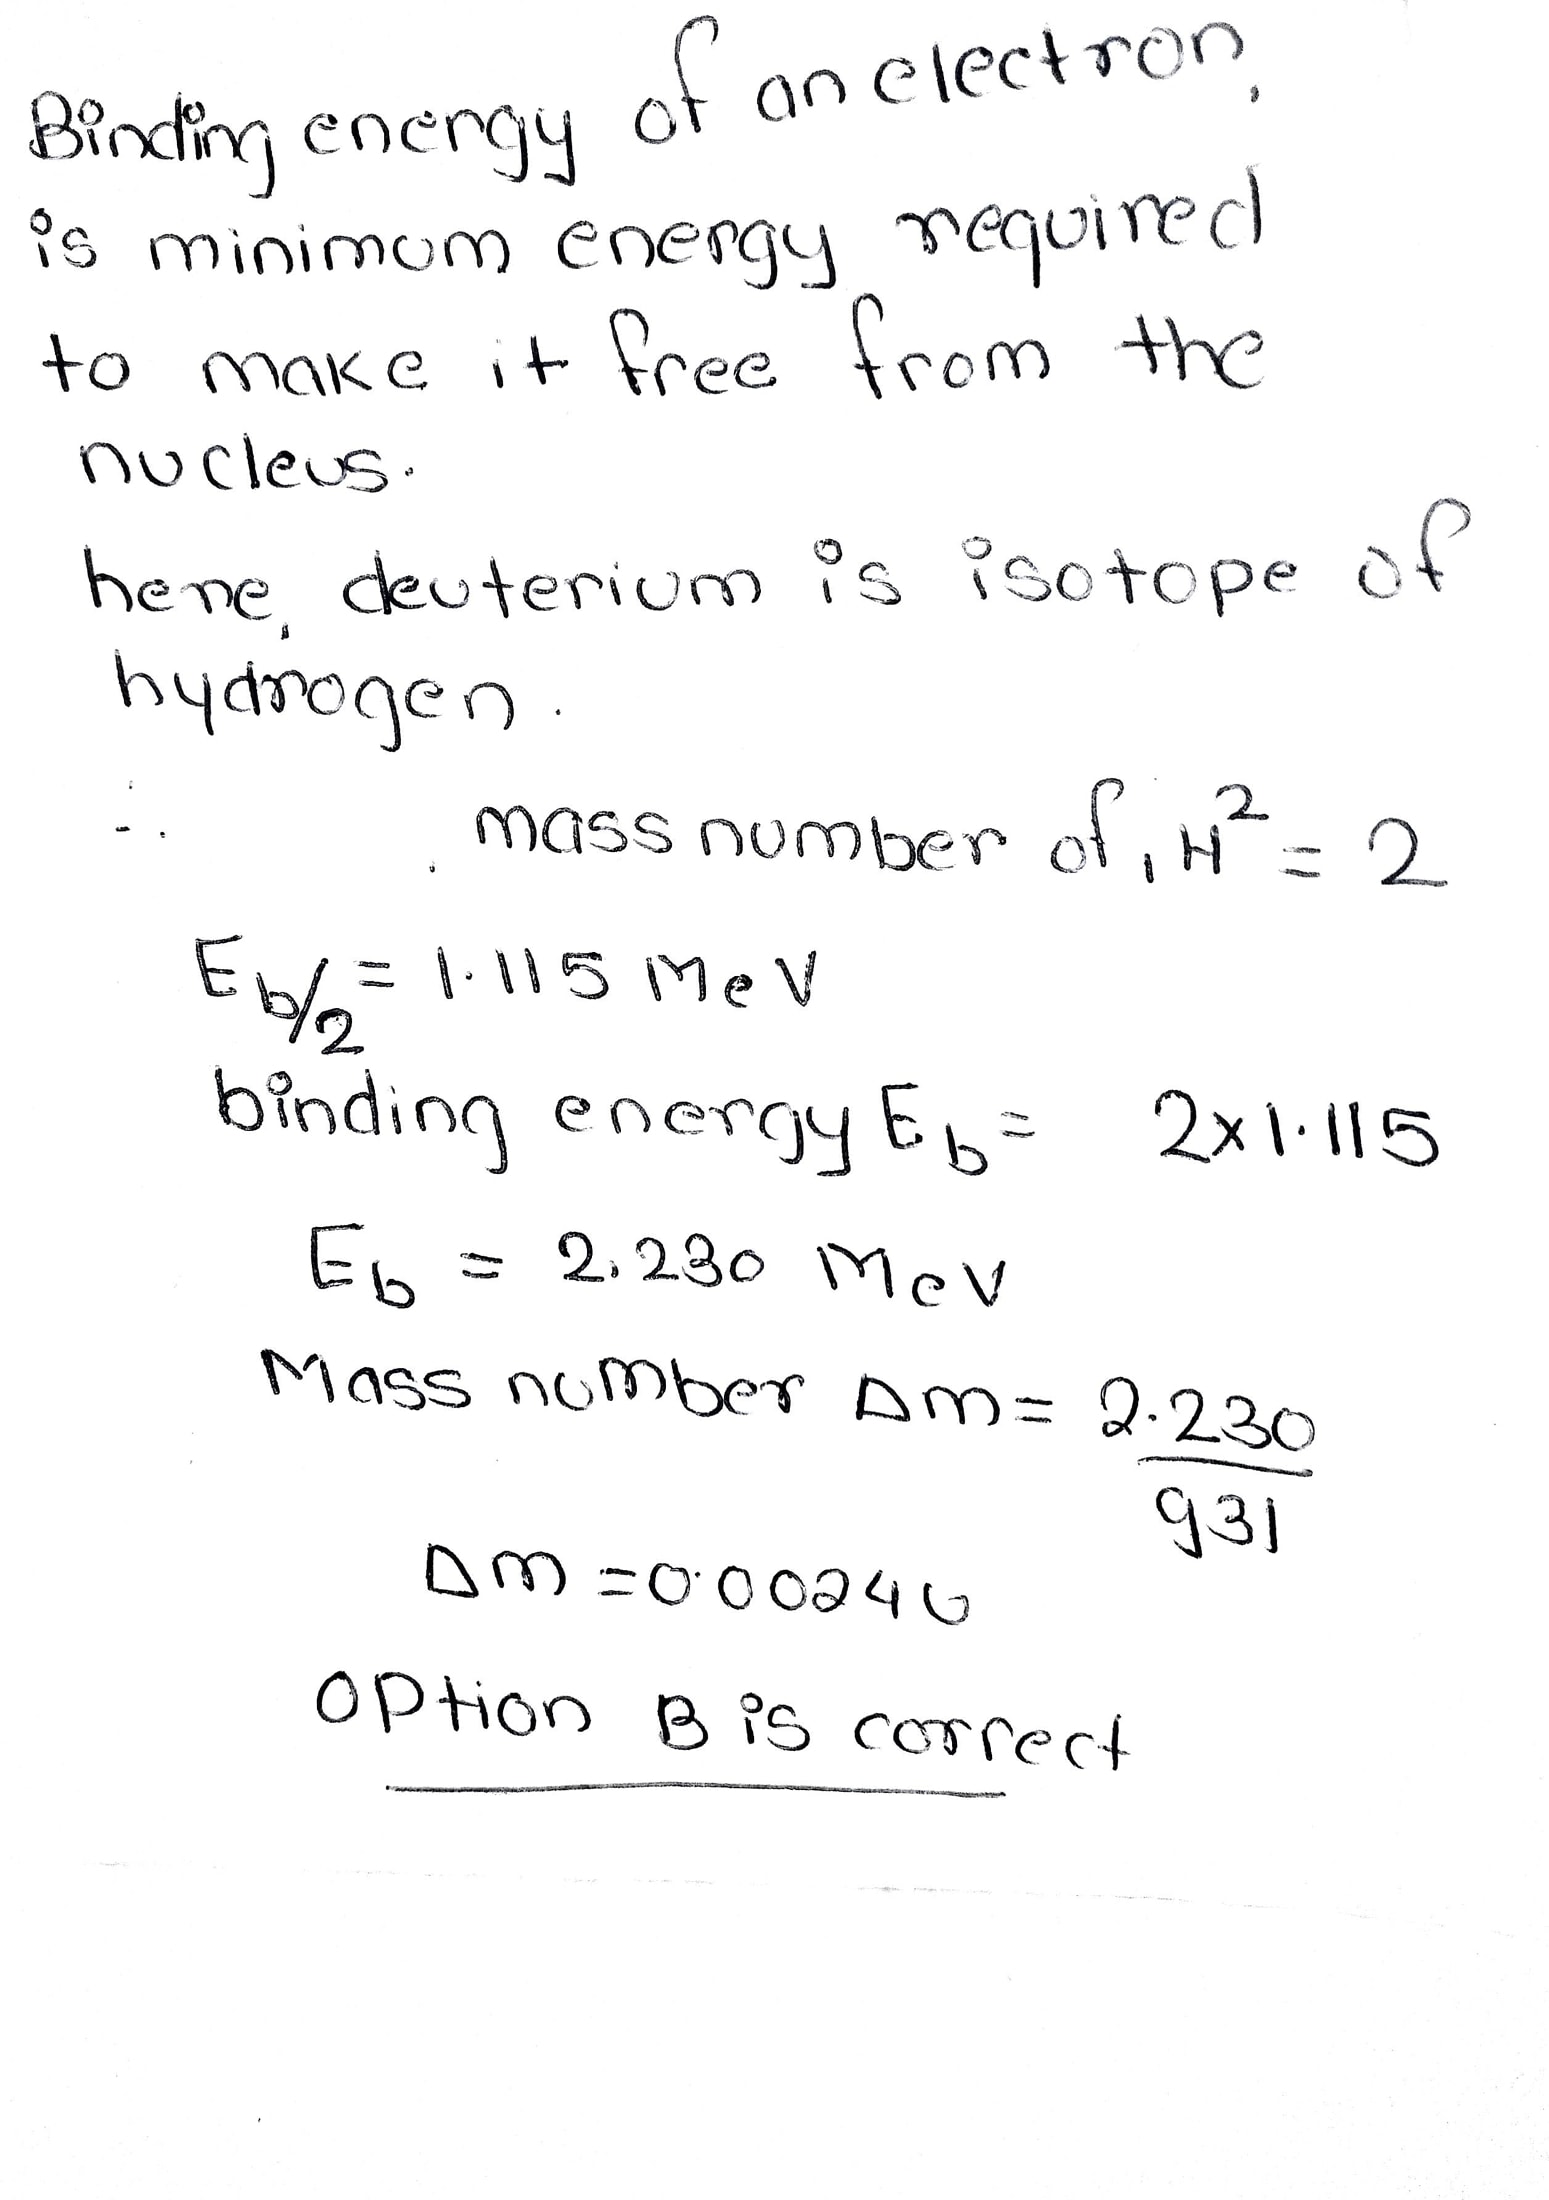 Binding energy of an electron,
is minimum energy required
to make it free from the
nucleus.
here, deuterium is isotope of
hydrogen.
∴ mass number of ₁H² = 2
Eb/2 = 1.115 MeV
binding energy Eb = 2x1.115
Eb = 2.230 MeV
Mass number Δm = 2.230
931
Δm = 0.00240
Option B is correct